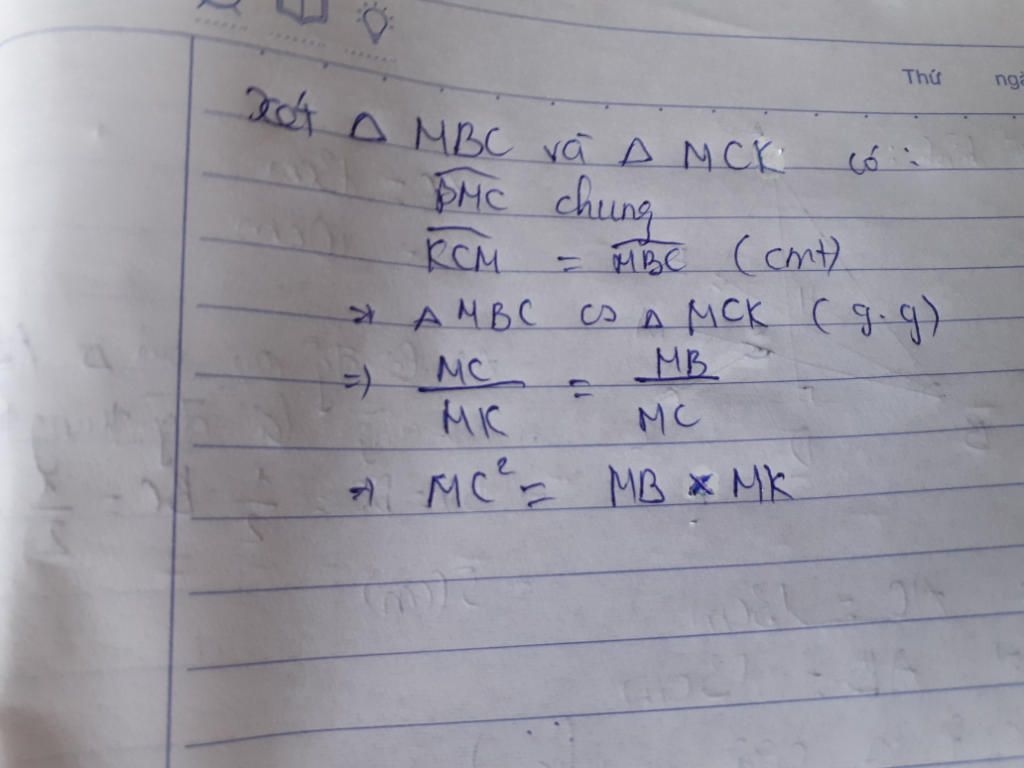 Thứ ngà
Xét Δ MBC và Δ MCK có :
$\widehat{BMC}$ chung
$\widehat{KCM}$ = $\widehat{MBC}$ (cmt)
=> Δ MBC ∽ Δ MCK ( g.g)
=> $\frac{MC}{MK}$ = $\frac{MB}{MC}$
=> MC² = MB × MK